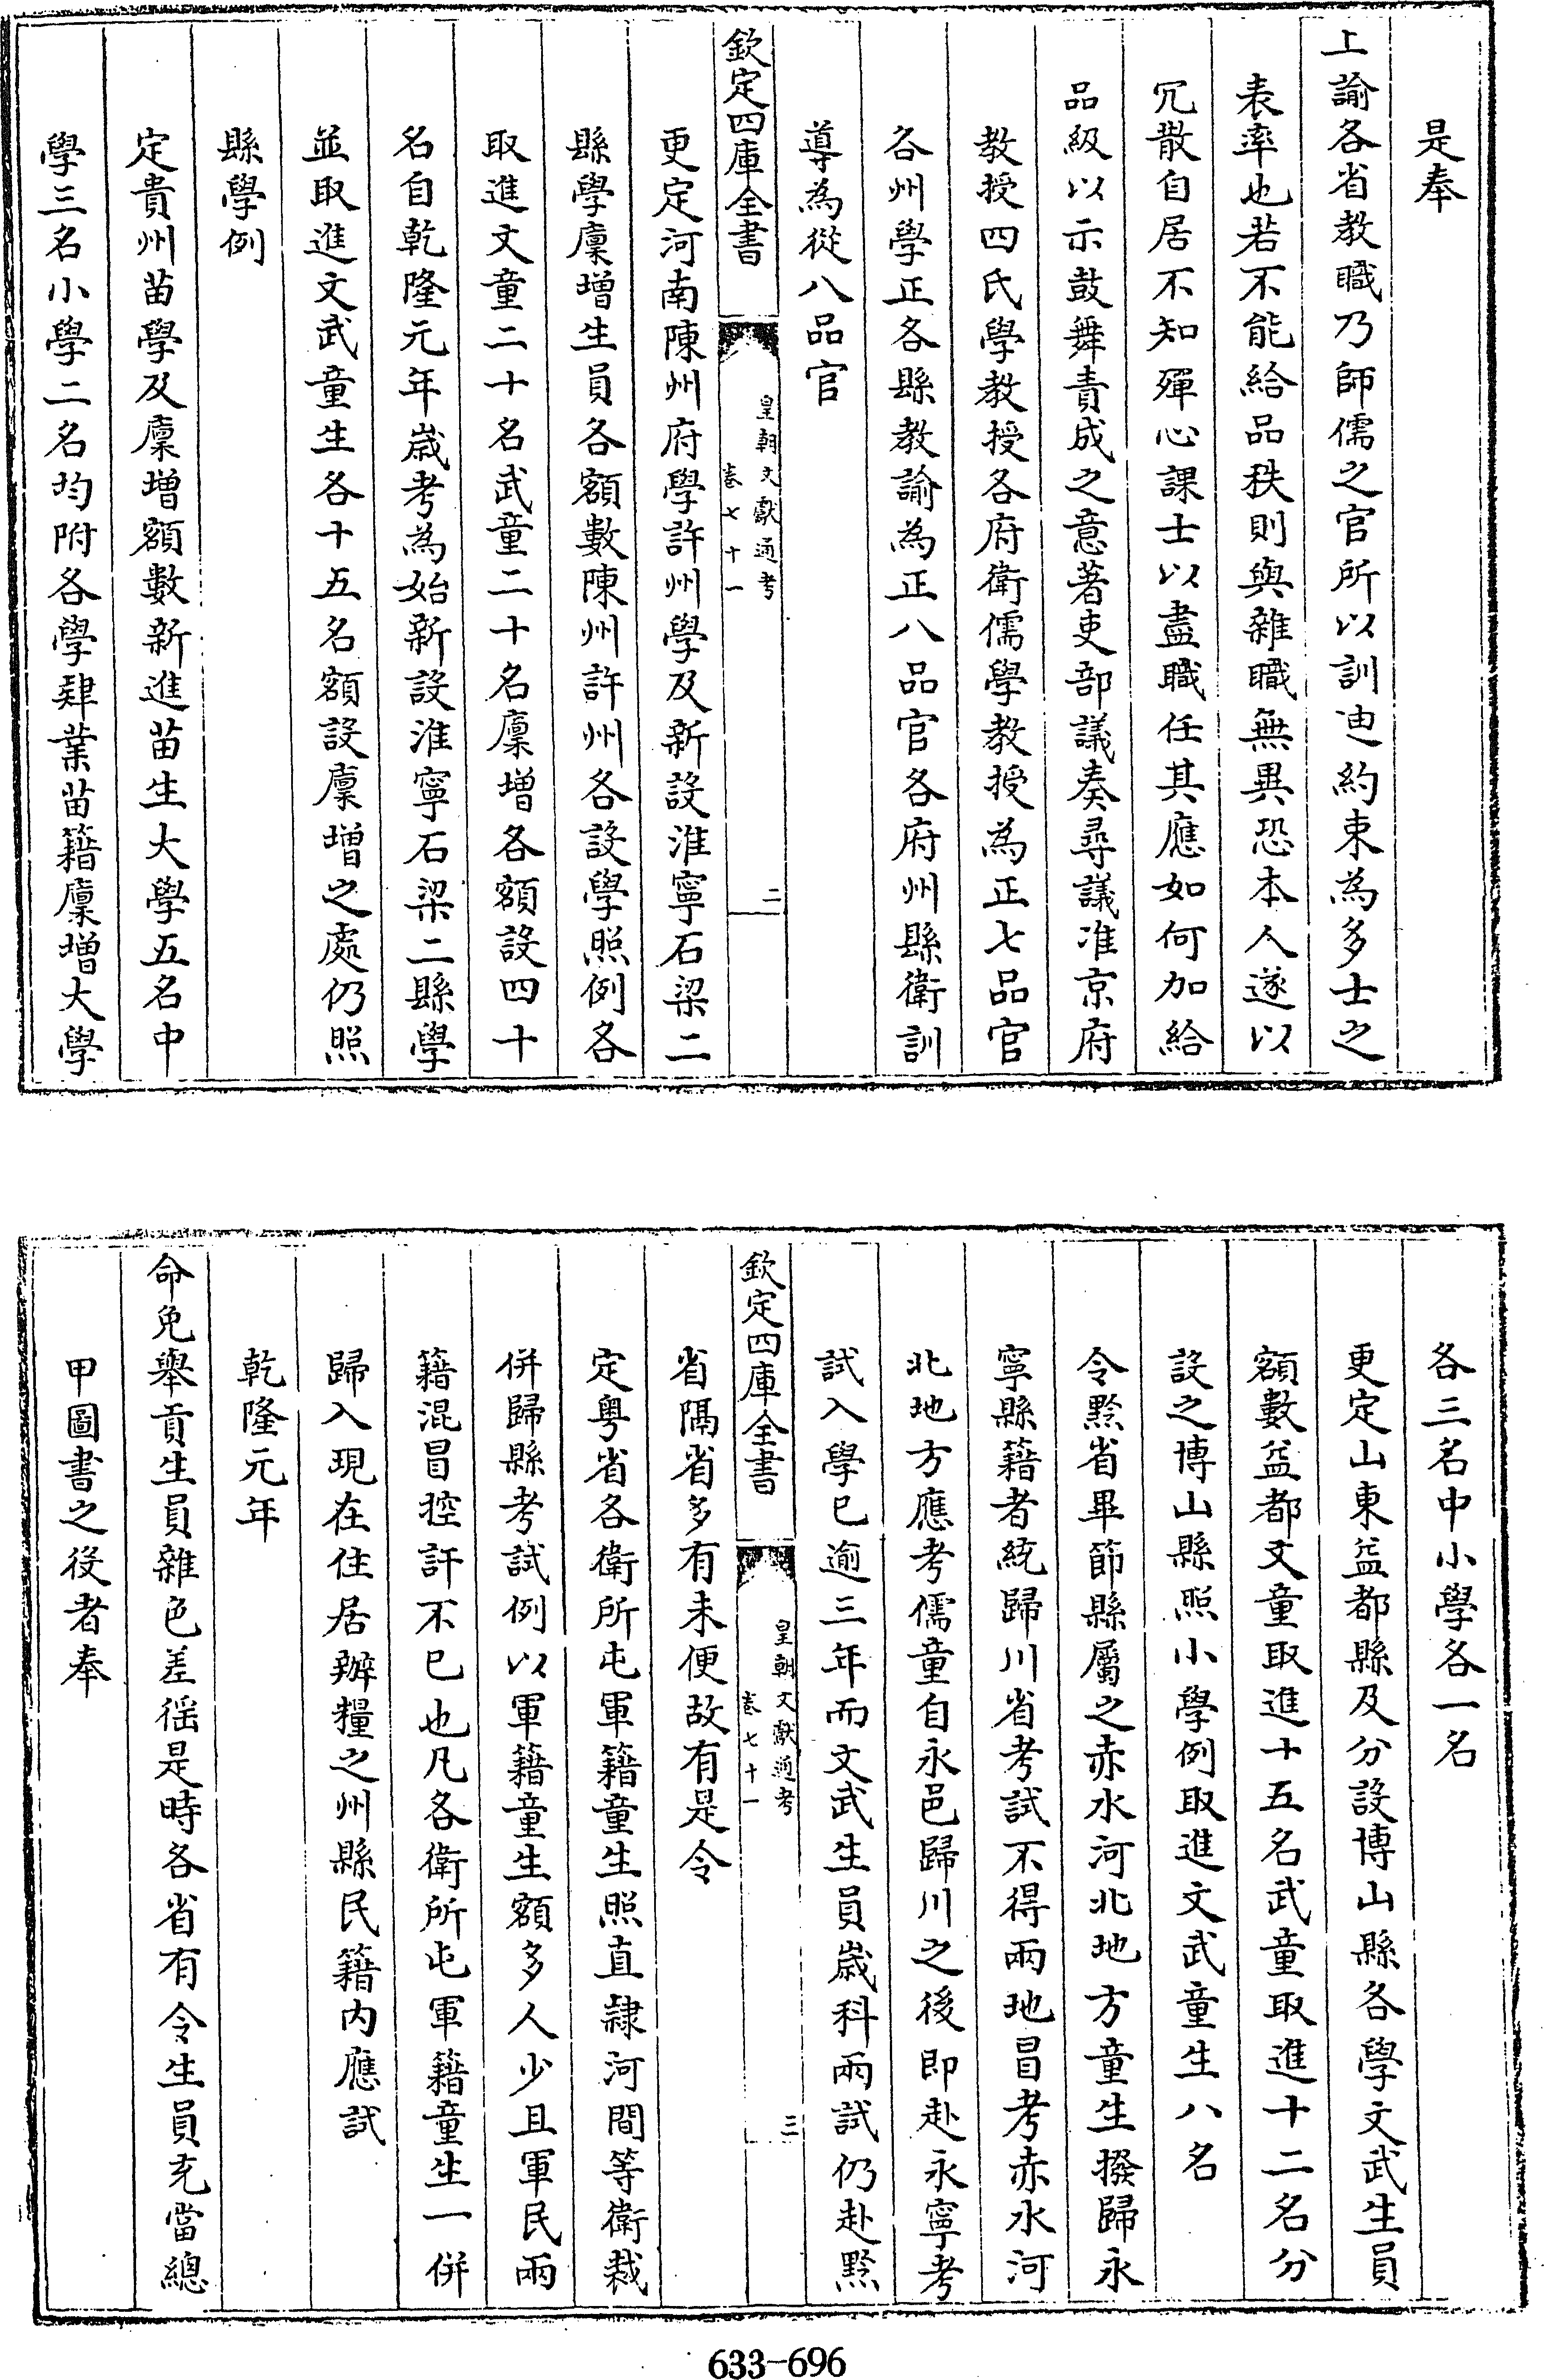 是奉
上諭各省教職乃師儒之官所以訓迪約束為多士之
表率也若不能給品秩則與雜職無異恐本人遂以
冗散自居不知殫心課士以盡職任其應如何加給
品級以示鼓舞責成之意著吏部議奏尋議准京府
教授四氏學教授各府衛儒學教授為正七品官
各州學正各縣教諭為正八品官各府州縣衛訓
導為從八品官
欽定四庫全書
皇朝文獻通考
卷七十一
二
更定河南陳州府學許州學及新設淮寧石梁二
縣學廩增生員各額數陳州許州各設學照例各
取進文童二十名武童二十名廩增各額設四十
名自乾隆元年歲考為始新設淮寧石梁二縣學
並取進文武童生各十五名額設廩增之處仍照
縣學例
定貴州苗學及廩增額數新進苗生大學五名中
學三名小學二名均附各學肄業苗籍廩增大學
各三名中小學各一名
更定山東益都縣及分設博山縣各學文武生員
額數益都文童取進十五名武童取進十二名分
設之博山縣照小學例取進文武童生八名
令黔省畢節縣屬之赤水河北地方童生撥歸永
寧縣籍者統歸川省考試不得兩地冒考赤水河
北地方應考儒童自永邑歸川之後即赴永寧考
試入學已逾三年而文武生員歲科兩試仍赴黔
欽定四庫全書
皇朝文獻通考
卷七十一
三
省隔省多有未便故有是令
定粤省各衛所屯軍籍童生照直隸河間等衛裁
併歸縣考試例以軍籍童生額多人少且軍民兩
籍混冒控訐不已也凡各衛所屯軍籍童生一併
歸入現在住居辦糧之州縣民籍內應試
乾隆元年
命免舉貢生員雜色差徭是時各省有令生員充當總
甲圖書之役者奉
633-696